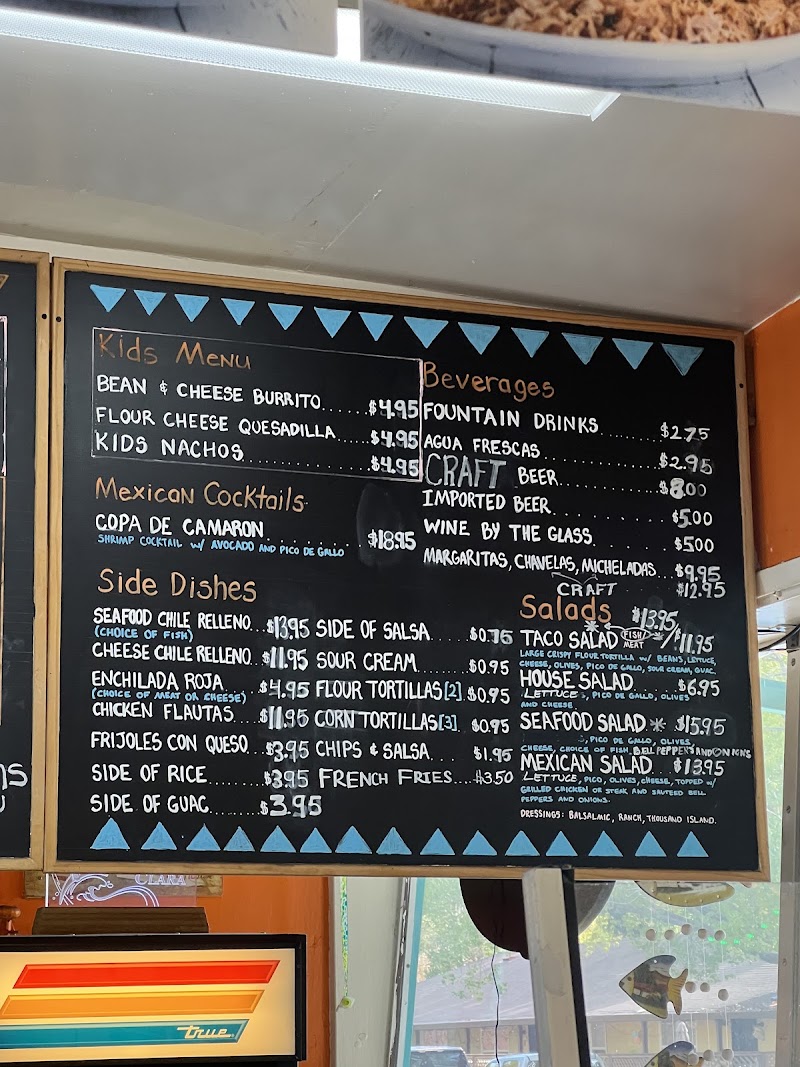 Kids Menu
BEAN & CHEESE BURRITO......$4.95
FLOUR CHEESE QUESADILLA.....$4.95
KIDS NACHOS..................$4.95
Mexican Cocktails
COPA DE CAMARON............$18.95
SHRIMP COCKTAIL w/ AVOCADO AND PICO DE GALLO
Side Dishes
SEAFOOD CHILE RELLENO...$13.95
(CHOICE OF FISH)
CHEESE CHILE RELLENO...$11.95
ENCHILADA ROJA......$4.95
(CHOICE OF MEAT OR CHEESE)
CHICKEN FLAUTAS....$11.95
FRIJOLES CON QUESO...$3.95
SIDE OF RICE........$3.95
SIDE OF GUAC.......$3.95
SIDE OF SALSA......$0.75
SOUR CREAM........$0.95
FLOUR TORTILLAS[2].$0.95
CORN TORTILLAS[3]..$0.95
CHIPS & SALSA.....$1.95
FRENCH FRIES...$3.50
Beverages
FOUNTAIN DRINKS........$2.75
AGUA FRESCAS...............$2.95
CRAFT BEER.............$8.00
IMPORTED BEER...............$5.00
WINE BY THE GLASS..........$5.00
MARGARITAS, CHAVELAS, MICHELADAS...$9.95
CRAFT $12.95
Salads
TACO SALAD FISH MEAT $13.95/$11.95
LARGE CRISPY FLOUR TORTILLA w/ BEANS, LETTUCE,
CHEESE, OLIVES, PICO DE GALLO, SOUR CREAM, GUAC.
HOUSE SALAD......$6.95
LETTUCE, PICO DE GALLO, OLIVES
AND CHEESE
SEAFOOD SALAD * $15.95
, PICO DE GALLO, OLIVES
CHEESE, CHOICE OF FISH. BELL PEPPERS AND ONIONS
MEXICAN SALAD...$13.95
LETTUCE, PICO, OLIVES, CHEESE, TOPPED w/
GRILLED CHICKEN OR STEAK AND SAUTEED BELL
PEPPERS AND ONIONS.
DRESSINGS: BALSALMIC, RANCH, THOUSAND ISLAND.
CLARA
true